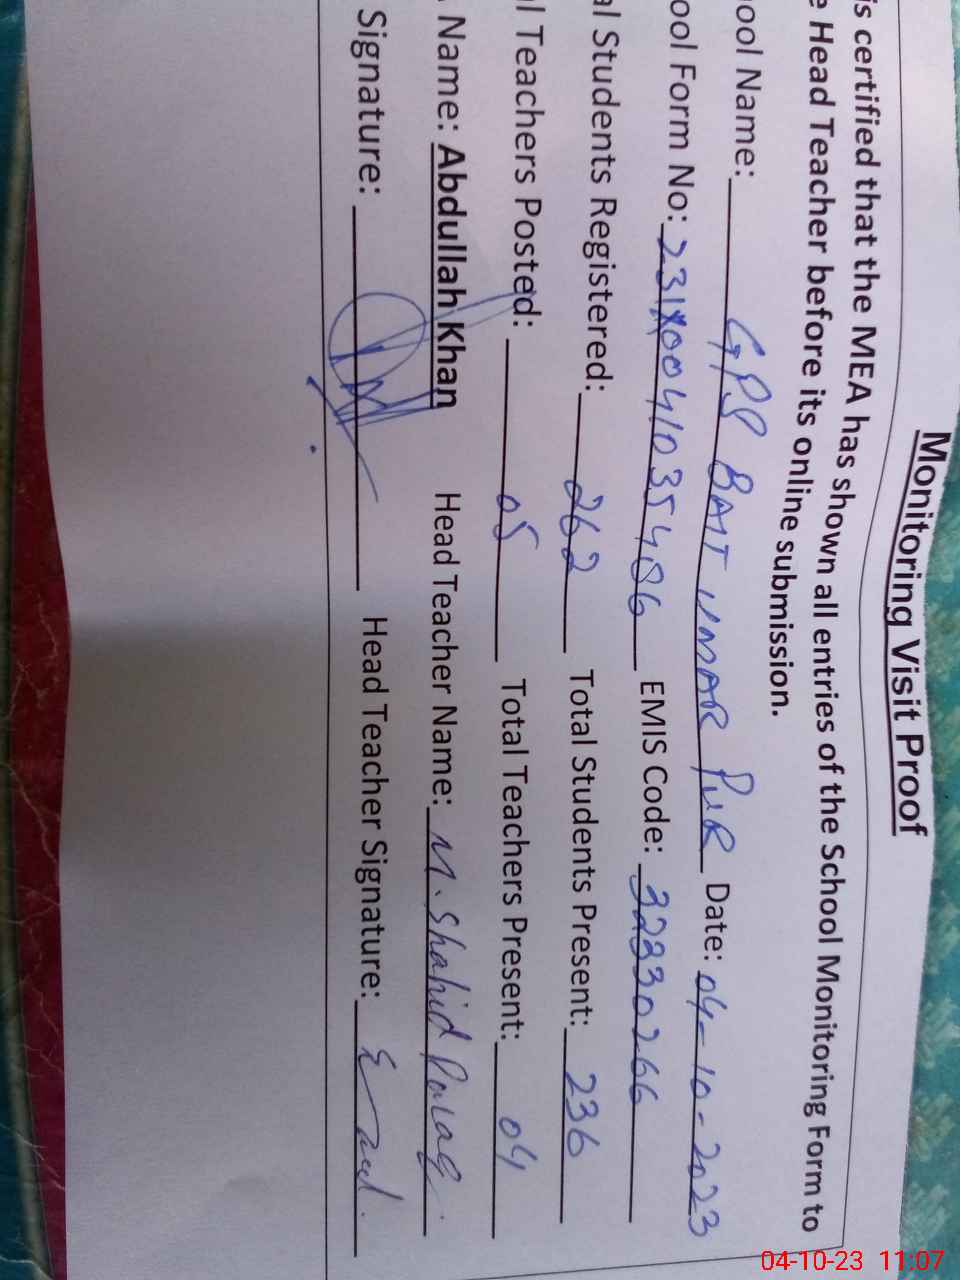 Monitoring Visit Proof
is certified that the MEA has shown all entries of the School Monitoring Form to
e Head Teacher before its online submission.
ool Name: GPS BAIT UMAR PUR Date: 04-10-2023
ool Form No: EMIS Code: 32330266
al Students Registered: 262 Total Students Present: 236
al Teachers Posted: 05 Total Teachers Present: 04
Name: Abdullah Khan Head Teacher Name: M. Shahid
Signature: Head Teacher Signature:
04-10-23 11:07